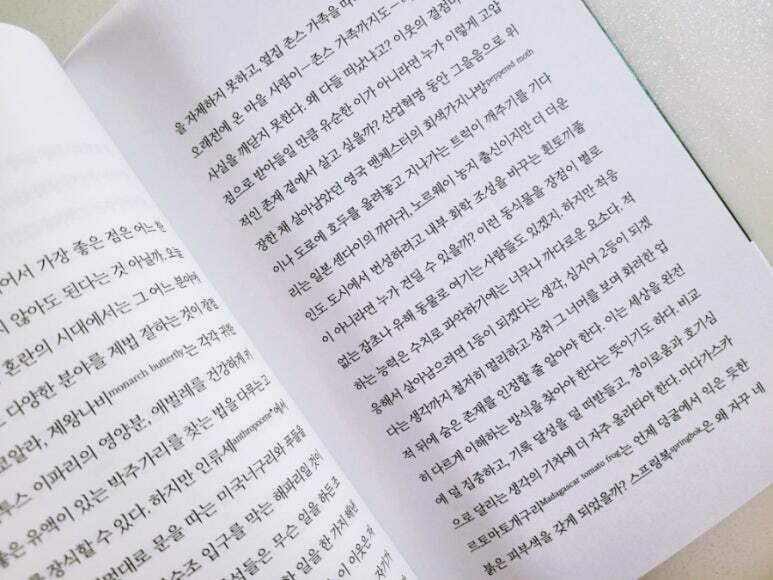 어서 가장 좋은 점은 어느 한
지 않아도 된다는 것 아닐까. 오늘
혼란의 시대에서는 그 어느 분야에
다양한 분야를 제법 잘하는 것이 장점
코알라, 제왕나비monarch butterfly는 각각 귀한
투스 이파리의 영양분, 애벌레를 건강하게 키
물은 유액이 있는 박주가리를 찾는 법을 다루는 고
를 장식할 수 있다. 하지만 인류세anthropocene*에서
멋대로 문을 따는 미국너구리와 푸른물
수조 입구를 막는 해파리일 것이
석들은 무슨 일을 하든 조
일을 한 가지 해선
이 이웃은 자
을 자제하지 못하고, 옆집 존스 가족을 따
오래전에 온 마을 사람이—존스 가족까지도—
사실을 깨닫지 못한다. 왜 다들 떠났냐고? 이웃의 결점
점으로 받아들일 만큼 유순한 이가 아니라면 누가 이렇게 고압
적인 존재 곁에서 살고 싶을까? 산업혁명 동안 그을음으로 위
장한 채 살아남았던 영국 맨체스터의 회색가지나방peppered moth
이나 도로에 호두를 올려놓고 지나가는 트럭이 깨주기를 기다
리는 일본 센다이의 까마귀, 노르웨이 농지 출신이지만 더 더운
인도 도시에서 번성하려고 내부 화학 조성을 바꾸는 흰토끼풀
이 아니라면 누가 견딜 수 있을까? 이런 동식물을 장점이 별로
없는 잡초나 유해 동물로 여기는 사람들도 있겠지. 하지만 적응
하는 능력은 수치로 파악하기에는 너무나 까다로운 요소다. 적
응해서 살아남으려면 1등이 되겠다는 생각, 심지어 2등이 되겠
다는 생각까지 철저히 멀리하고 성취 그 너머를 보며 화려한 업
적 뒤에 숨은 존재를 인정할 줄 알아야 한다. 이는 세상을 완전
히 다르게 이해하는 방식을 찾아야 한다는 뜻이기도 하다. 비교
에 덜 집중하고, 기록 달성을 덜 떠받들고, 경이로움과 호기심
으로 달리는 생각의 기차에 더 자주 올라타야 한다. 마다가스카
르토마토개구리Madagascar tomato frog는 언제 덩굴에서 익은 듯한
붉은 피부색을 갖게 되었을까? 스프링복springbok은 왜 자꾸 네